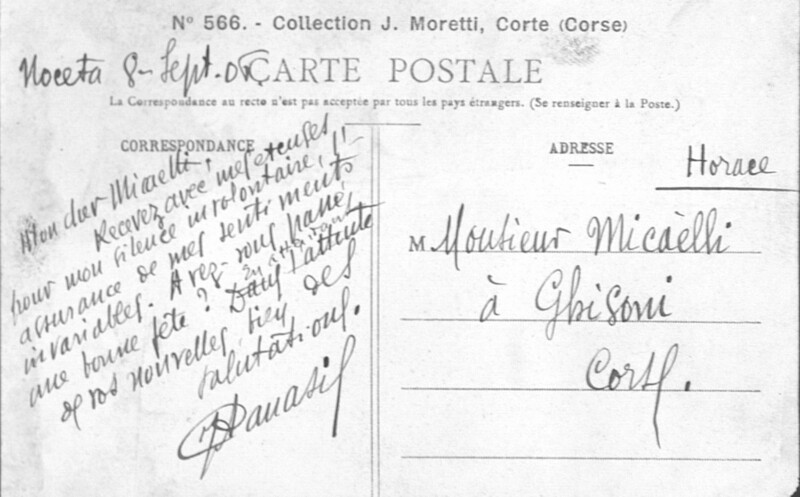 Nº 566. - Collection J. Moretti, Corte (Corse)
Noceta 8- Sept. 05
CARTE POSTALE
La Correspondance au recto n'est pas acceptée par tous les pays étrangers. (Se renseigner à la Poste.)
CORRESPONDANCE
Mon cher Micaelli,
Recevez avec mes excuses
pour mon silence involontaire, l'-
assurance de mes sentiments
invariables. Avez-vous passé,
une bonne fête ? Dans l'attente
de vos nouvelles, bien des
salutations.
ADRESSE
Horace
M. Monsieur Micaëlli
à Ghisoni
Corse.